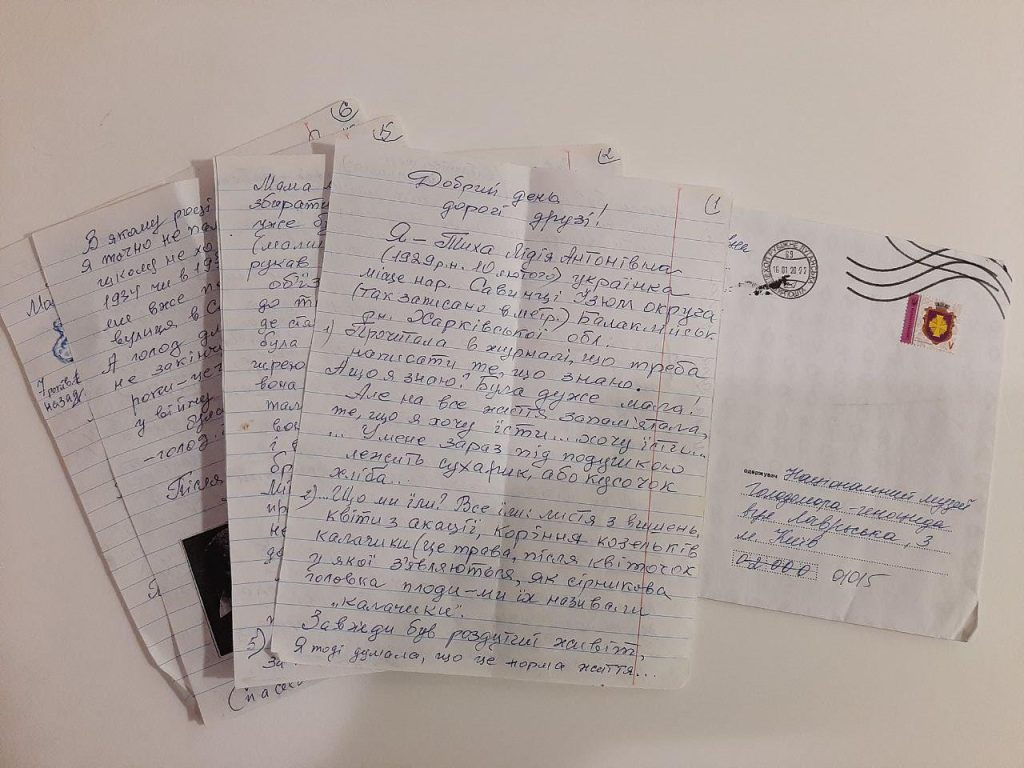 6
5
2
1
Добрий день
дорогі друзі!
Я – Тиха Лідія Антонівна
(1929 р.н. 10 лютого) українка
місце нар. Савинці Ізюм округа
(так записано в метр.) Балаклійськ
рн. Харківської обл.
1) Прочитала в журналі, що треба
написати те, що знаю.
А що я знаю? Була дуже мала!
Але на все життя запам'ятала,
те, що я хочу їсти... хочу їсти...
... У мене зараз під подушкою
лежить сухарик, або кусочок
хліба...
2) ... Що ми їли? Все їли: листя з вишень,
квіти з акації, коріння козельків
калачики (це трава, після квіточок
у якої з'являються, як сірникова
головка плоди – ми їх називали
"калачики".
Завжди був роздутий живіт,
Я тоді думала, що це норма життя...
Мама
збирати
уже б
(мали
рукав
об'їз
до т
де ста
була
вона
В якому році
Я точно не па
школу не хо
1934 чи в 193
мене вже по
вулиця в С
А голод дл
не закінч
роки – це
у війну
було
-голод...
Після
Ма
7 років
назад.
Я
16 01 20
одержувач Національний музей
Голодомора-геноцида
вул. Лаврська, 3
м. Київ
02000 01015